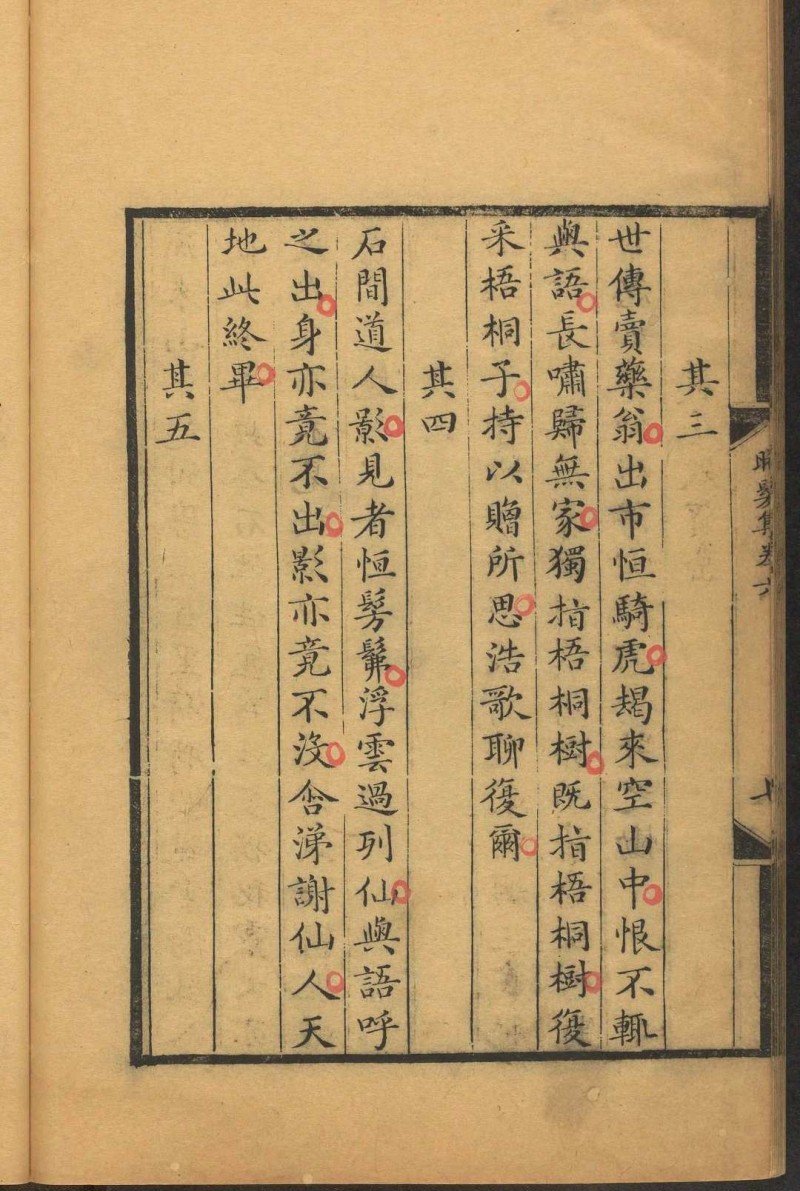 其三
世傳賣藥翁出市恒騎虎朅來空山中恨不輒
與語長嘯歸無家獨指梧桐樹既指梧桐樹復
采梧桐子持以贈所思浩歌聊復爾
其四
石間道人影見者恒髣髴浮雲過列仙與語呼
之出身亦竟不出影亦竟不沒含涕謝仙人天
地此終畢
其五
晞髮集卷六
七